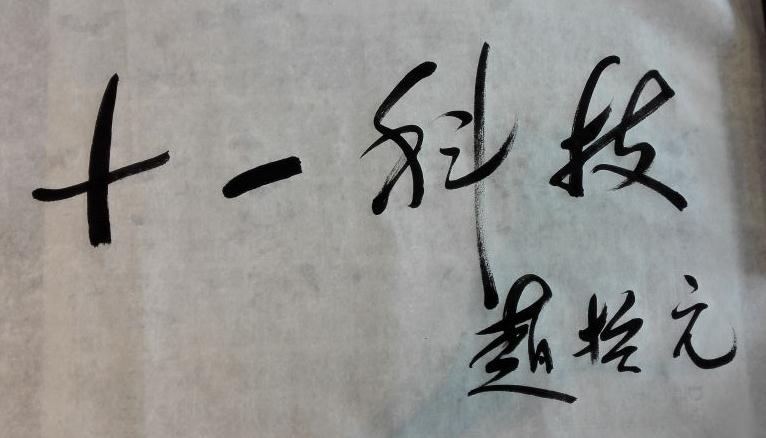 十一科技
赵振元